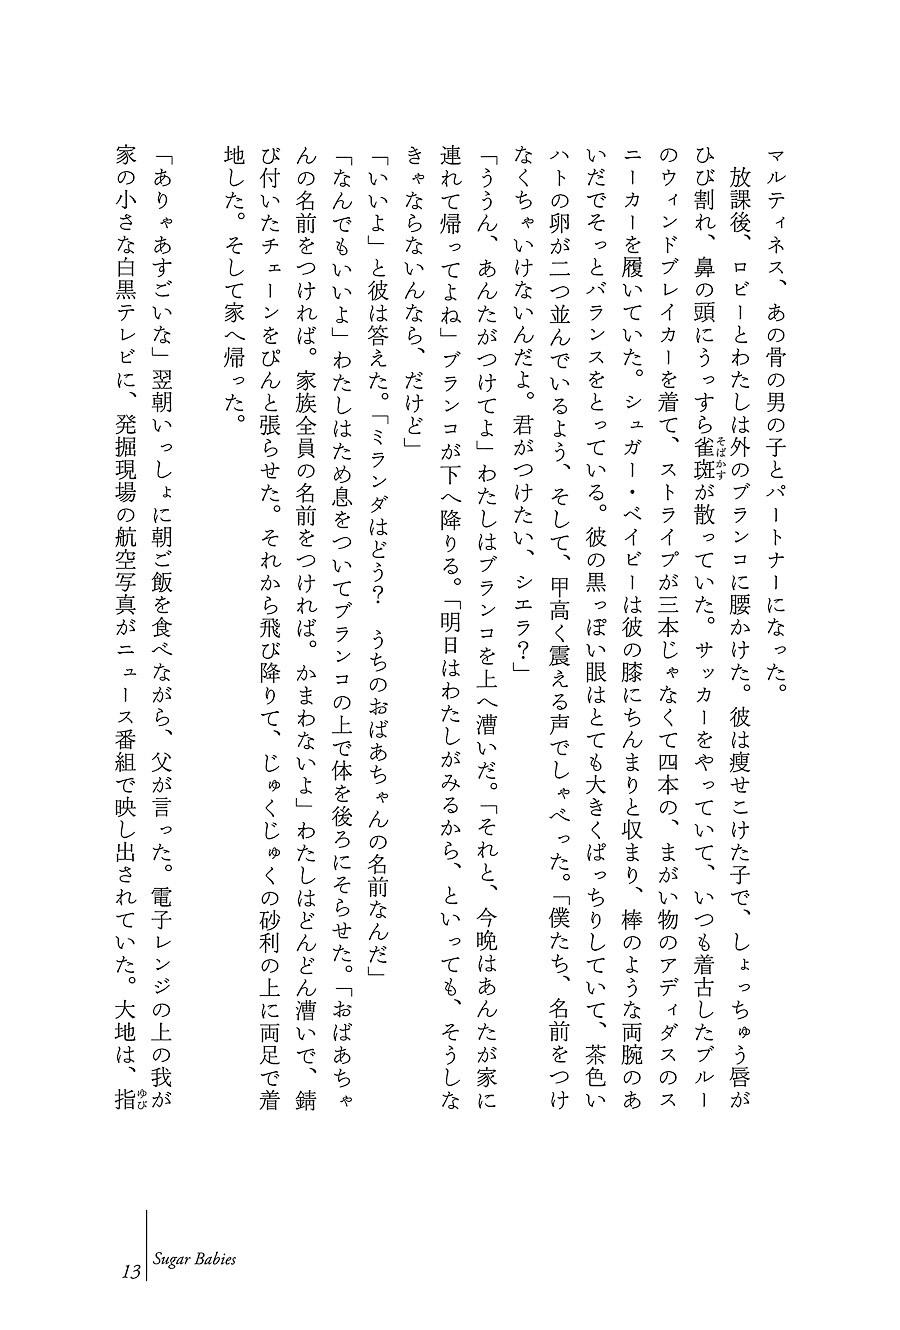 マルティネス、あの骨の男の子とパートナーになった。
　放課後、ロビーとわたしは外のブランコに腰かけた。彼は痩せこけた子で、しょっちゅう唇が
ひび割れ、鼻の頭にうっすら雀斑が散っていた。サッカーをやっていて、いつも着古したブルー
そばかす
のウィンドブレイカーを着て、ストライプが三本じゃなくて四本の、まがい物のアディダスのス
ニーカーを履いていた。シュガー・ベイビーは彼の膝にちんまりと収まり、棒のような両腕のあ
いだでそっとバランスをとっている。彼の黒っぽい眼はとても大きくぱっちりしていて、茶色い
ハトの卵が二つ並んでいるよう、そして、甲高く震える声でしゃべった。「僕たち、名前をつけ
なくちゃいけないんだよ。君がつけたい、シエラ？」
「ううん、あんたがつけてよ」わたしはブランコを上へ漕いだ。「それと、今晩はあんたが家に
連れて帰ってよね」ブランコが下へ降りる。「明日はわたしがみるから、といっても、そうしな
きゃならないんなら、だけど」
「いいよ」と彼は答えた。「ミランダはどう？　うちのおばあちゃんの名前なんだ」
「なんでもいいよ」わたしはため息をついてブランコの上で体を後ろにそらせた。「おばあちゃ
んの名前をつければ。家族全員の名前をつければ。かまわないよ」わたしはどんどん漕いで、錆
び付いたチェーンをぴんと張らせた。それから飛び降りて、じゅくじゅくの砂利の上に両足で着
地した。そして家へ帰った。
「ありゃあすごいな」翌朝いっしょに朝ご飯を食べながら、父が言った。電子レンジの上の我が
家の小さな白黒テレビに、発掘現場の航空写真がニュース番組で映し出されていた。大地は、指
ゆび
Sugar Babies
13